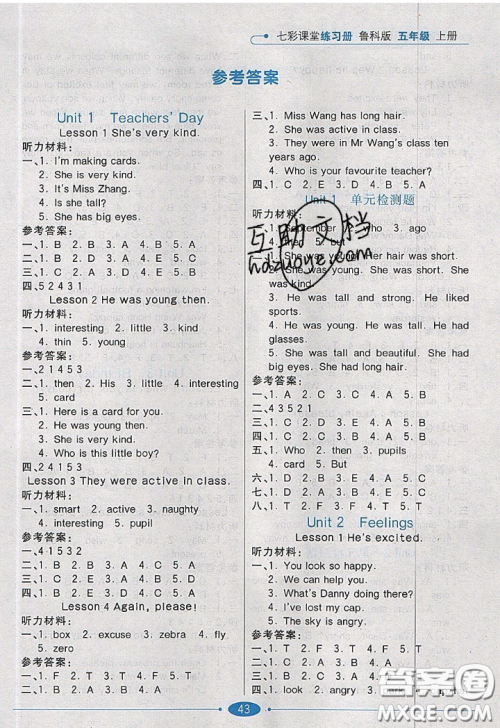 七彩课堂练习册 鲁科版 五年级 上册
参考答案
Unit 1 Teachers' Day
Lesson 1 She's very kind.
听力材料:
一、1. I'm making cards.
2. She is very kind.
3. It's Miss Zhang.
4. Is she tall?
5. She has big eyes.
参考答案:
一、1. B 2. B 3. A 4. B 5. A
二、1. C 2. A 3. B 4. D
三、1. C 2. A 3. D 4. E 5. B
四、5 2 4 3 1
Lesson 2 He was young then.
听力材料:
一、1. interesting 2. little 3. kind
4. thin 5. young
参考答案:
一、2 1 4 5 3
二、1. then 2. His 3. little 4. interesting
5. card
三、1. Here is a card for you.
2. He was young then.
3. She is very kind.
4. Who is this little boy?
四、2 4 1 5 3
Lesson 3 They were active in class.
听力材料:
一、1. smart 2. active 3. naughty
4. interesting 5. pupil
参考答案:
一、4 1 5 3 2
二、1. B 2. B 3. A 4. C 5. A
三、1. C 2. D 3. B 4. A 5. E
四、1. C 2. A 3. B 4. C 5. A
Lesson 4 Again, please!
听力材料:
一、1. box 2. excuse 3. zebra 4. fly
5. zero
参考答案:
一、1. F 2. T 3. F 4. T 5. T
二、1. B 2. A 3. A 4. B 5. B
三、1. Miss Wang has long hair.
2. She was active in class.
3. They were in Mr Wang's class ten
years ago.
4. Who is your favourite teacher?
四、1. C 2. E 3. D 4. B 5. A
Unit 1 单元检测题
听力材料:
一、1. September 2. Who 3. ago
4. then 5. but
was young. Her hair was short.
2. She was young. She was short. She
was kind.
3. He was tall and strong. He liked
sports.
4. He was young. He was tall. He had
glasses.
5. She was tall and beautiful. She had
big eyes. She had long hair.
参考答案:
一、1. A 2. C 3. C 4. A 5. B
二、4 3 5 2 1
三、1. C 2. D 3. E 4. A 5. B
四、1. C 2. C 3. A 4. A 5. B
五、1. Who 2. then 3. pupils
4. card 5. But
六、1. D 2. A 3. B 4. E 5. C
七、1. C 2. D 3. A 4. E 5. B
八、1. F 2. T 3. F 4. T 5. T
Unit 2 Feelings
Lesson 1 He's excited.
听力材料:
一、1. You look so happy.
2. We can help you.
3. What's Danny doing there?
4. I've lost my cap.
5. The sky is angry.
参考答案:
一、1. B 2. B 3. A 4. B
二、1. C 2. D 3. A 4. E
三、1. D 2. A 3. E 4. B
四、1. look 2. angry 3.
43
互助文档
hdzuoye.com
答案圈